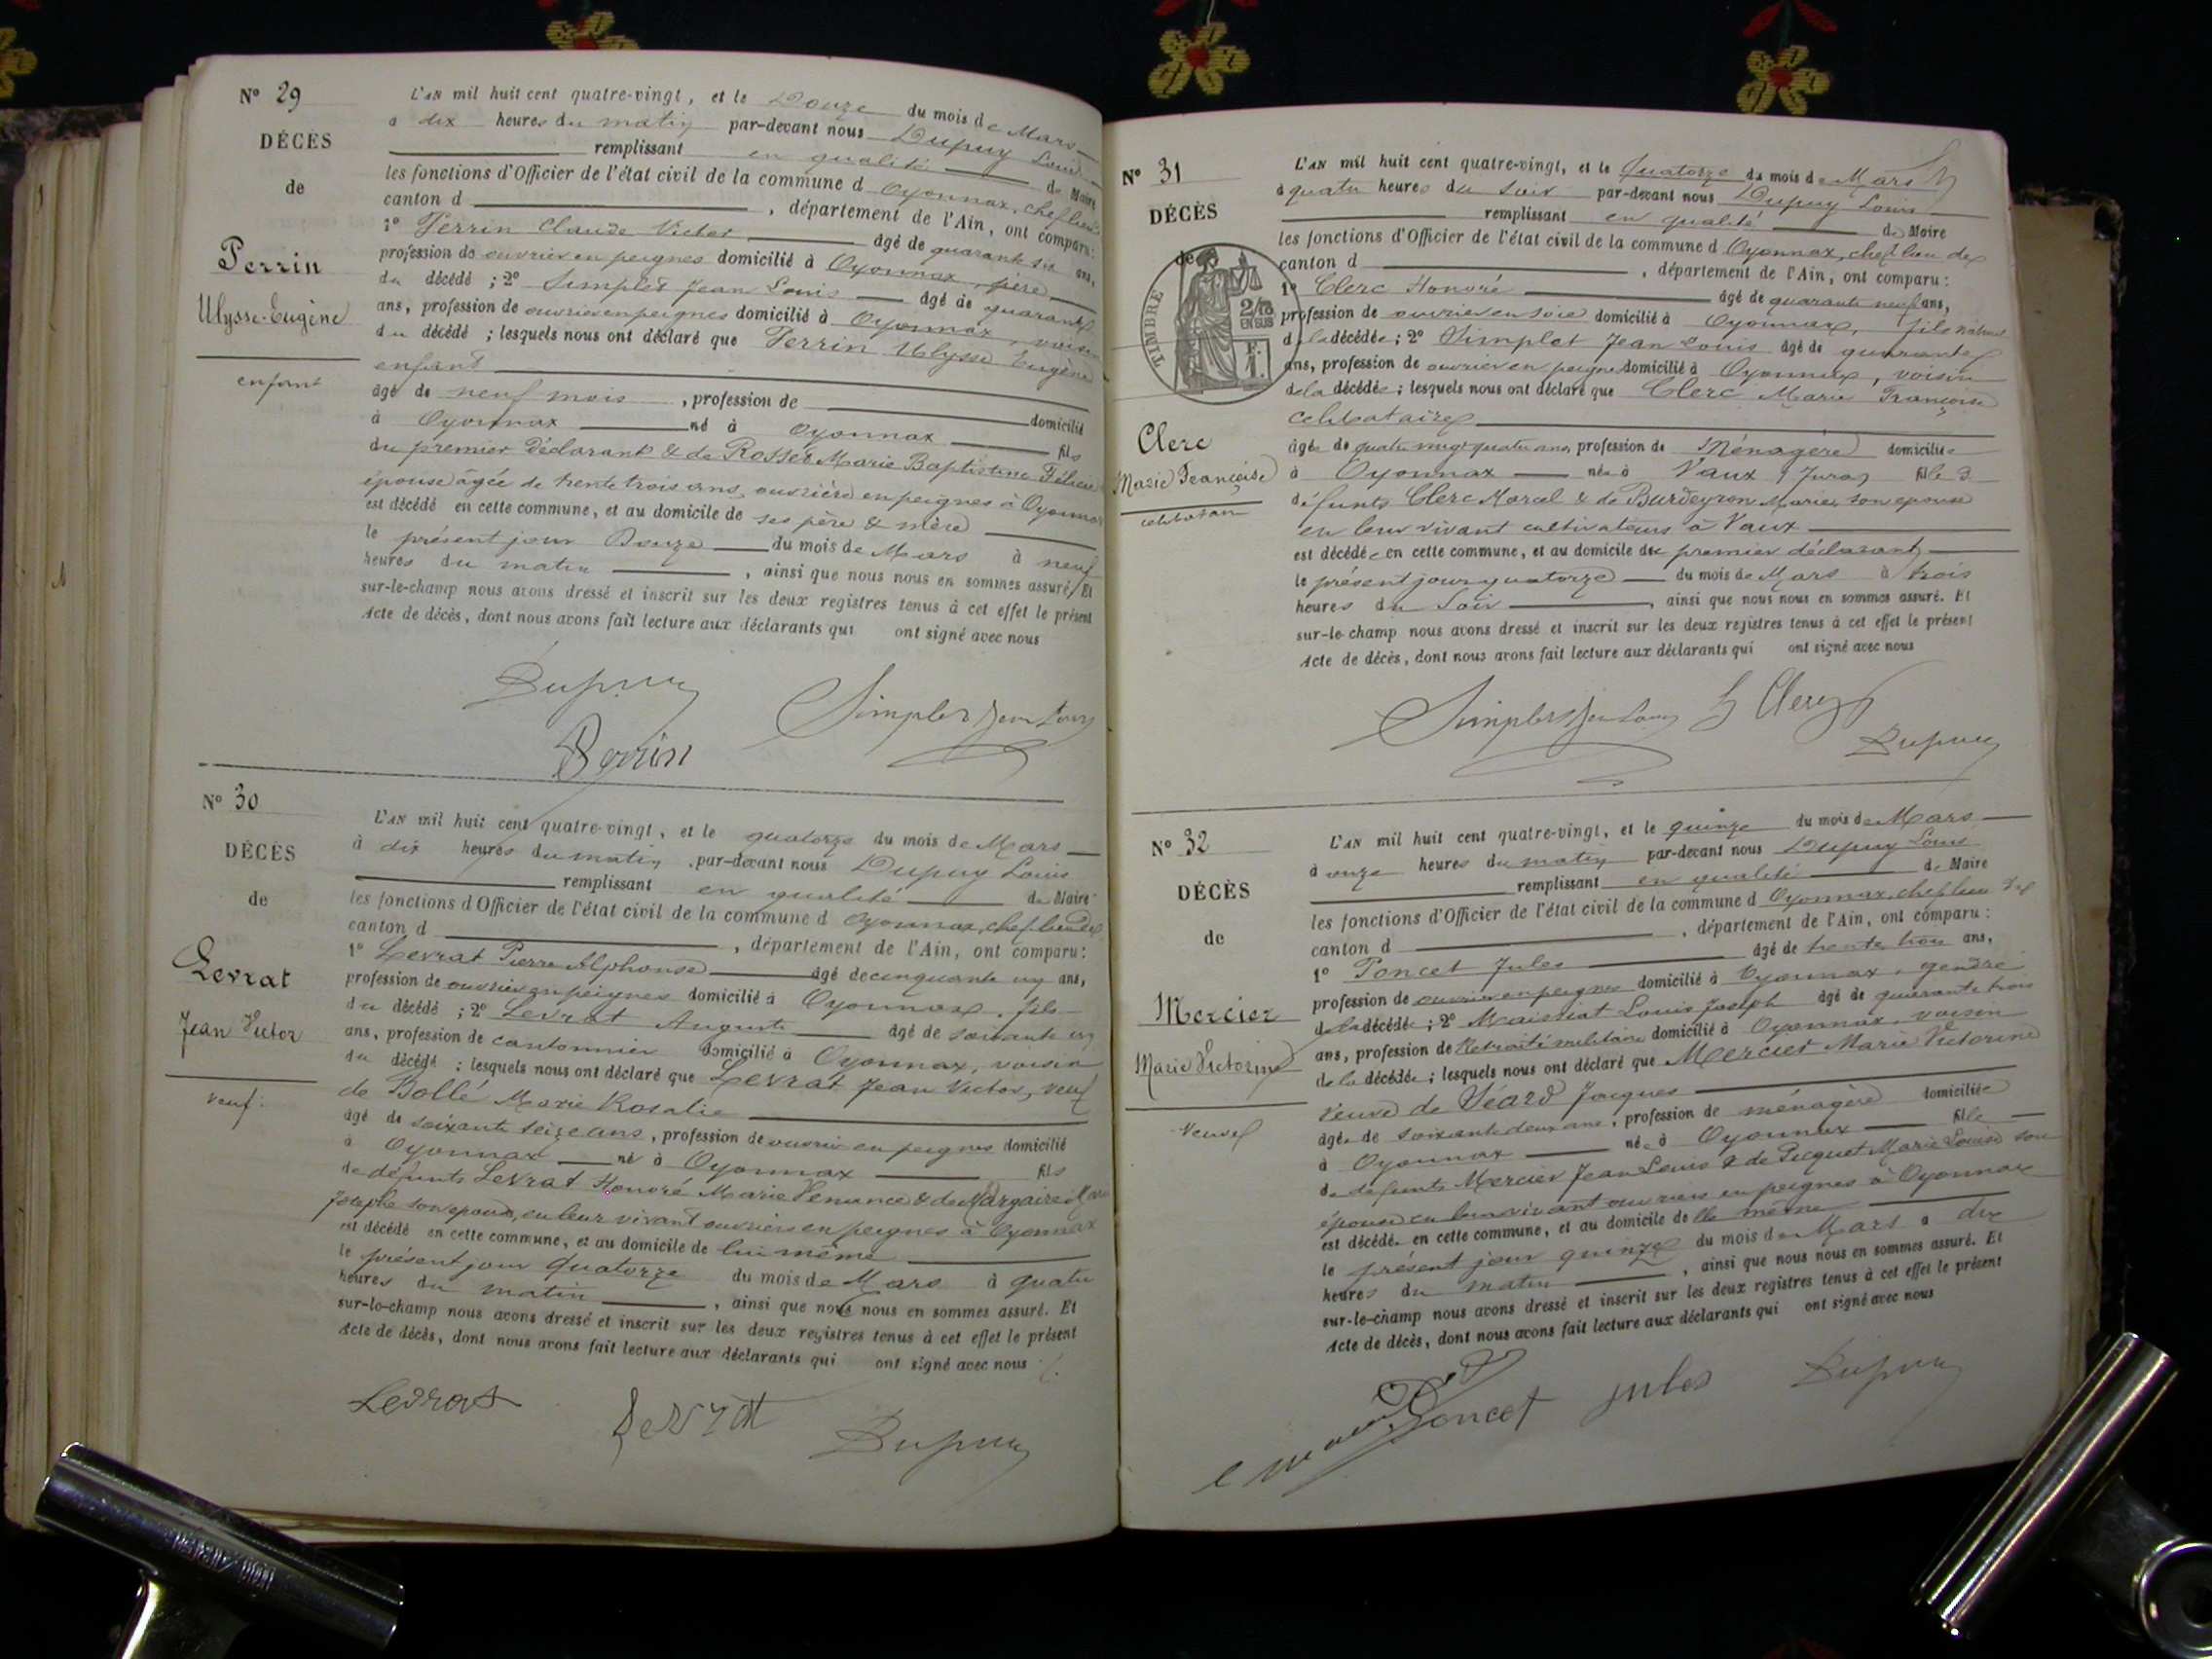 Nº 29
DÉCÈS
de
Perrin
Ulysse-Eugène
enfant
L'AN mil huit cent quatre-vingt, et le Douze du mois de Mars
à dix heures du matin par-devant nous Dupuy Louis
remplissant en qualité de Maire
les fonctions d'Officier de l'état civil de la commune d Oyonnax, chef lieu
canton d , département de l'Ain, ont comparu:
1º Perrin Claude Victor âgé de quarante six ans,
profession de ouvrier en peignes domicilié à Oyonnax, père
du décédé ; 2º Simplet Jean Louis âgé de quarante
ans, profession de ouvrier en peignes domicilié à Oyonnax, voisin
du décédé ; lesquels nous ont déclaré que Perrin Ulysse Eugène
enfant
âgé de neuf mois , profession de domicilié
à Oyonnax né à Oyonnax fils
du premier Déclarant & de Rosset Marie Baptistine Félicie
épouse âgée de trente trois ans, ouvrière en peignes à Oyonnax
est décédé en cette commune, et au domicile de ses père & mère
le présent jour Douze du mois de Mars à neuf
heures du matin , ainsi que nous nous en sommes assuré. Et
sur-le-champ nous avons dressé et inscrit sur les deux registres tenus à cet effet le présent
Acte de décès, dont nous avons fait lecture aux déclarants qui ont signé avec nous
Dupuy
Simplet Jean Louis
Perrin
Nº 30
DÉCÈS
de
Levrat
Jean Victor
veuf.
L'AN mil huit cent quatre-vingt, et le quatorze du mois de Mars
à dix heures du matin par-devant nous Dupuy Louis
remplissant en qualité de Maire
les fonctions d'Officier de l'état civil de la commune d Oyonnax, chef lieu de
canton d , département de l'Ain, ont comparu:
1º Levrat Pierre Alphonse âgé de cinquante un ans,
profession de ouvrier en peignes domicilié à Oyonnax, fils
du décédé ; 2º Levrat Auguste âgé de soixante un
ans, profession de cantonnier domicilié à Oyonnax, voisin
du décédé ; lesquels nous ont déclaré que Levrat Jean Victor, veuf
de Bollé Marie Rosalie
âgé de soixante seize ans, profession de ouvrier en peignes domicilié
à Oyonnax né à Oyonnax fils
de défunts Levrat Honoré Marie Venance & de Margaire Marie
Josephe son épouse, en leur vivant ouvriers en peignes à Oyonnax
est décédé en cette commune, et au domicile de lui même
le présent jour quatorze du mois de Mars à quatre
heures du matin , ainsi que nous nous en sommes assuré. Et
sur-le-champ nous avons dressé et inscrit sur les deux registres tenus à cet effet le présent
Acte de décès, dont nous avons fait lecture aux déclarants qui ont signé avec nous
Levrat
Levrat
Dupuy
Nº 31
DÉCÈS
de
TIMBRE
2/10
EN SUS
F.
1.
Clerc
Marie Françoise
célibataire
L'AN mil huit cent quatre-vingt, et le Quatorze du mois de Mars
à quatre heures du soir par-devant nous Dupuy Louis
remplissant en qualité de Maire
les fonctions d'Officier de l'état civil de la commune d Oyonnax, chef lieu de
canton d , département de l'Ain, ont comparu:
1º Clerc Honoré âgé de quarante neuf ans,
profession de ouvrier en soie domicilié à Oyonnax, fils naturel
de la décédée ; 2º Simplet Jean Louis âgé de quarante
ans, profession de ouvrier en peigne domicilié à Oyonnax, voisin
de la décédée ; lesquels nous ont déclaré que Clerc Marie Françoise
célibataire
âgée de quatre vingt quatre ans, profession de Ménagère domiciliée
à Oyonnax née à Vaux (Jura) fille d
défunts Clerc Marcel & de Burdeyron Marie, son épouse
en leur vivant cultivateurs à Vaux
est décédée en cette commune, et au domicile du premier déclarant
le présent jour quatorze du mois de Mars à trois
heures du soir , ainsi que nous nous en sommes assuré. Et
sur-le-champ nous avons dressé et inscrit sur les deux registres tenus à cet effet le présent
Acte de décès, dont nous avons fait lecture aux déclarants qui ont signé avec nous
Simplet Jean Louis
H Clerc
Dupuy
Nº 32
DÉCÈS
de
Mercier
Marie Victorine
Veuve
L'AN mil huit cent quatre-vingt, et le quinze du mois de Mars
à onze heures du matin par-devant nous Dupuy Louis
remplissant en qualité de Maire
les fonctions d'Officier de l'état civil de la commune d Oyonnax, chef lieu de
canton d , département de l'Ain, ont comparu:
1º Poncet Jules âgé de trente trois ans,
profession de ouvrier en peignes domicilié à Oyonnax, gendre
de la décédée ; 2º Maissiat Louis Joseph âgé de quarante trois
ans, profession de Retraité militaire domicilié à Oyonnax, voisin
de la décédée ; lesquels nous ont déclaré que Mercier Marie Victorine
Veuve de Séard Jacques
âgée de soixante deux ans, profession de ménagère domiciliée
à Oyonnax née à Oyonnax fille
de défunts Mercier Jean Louis & de Picquet Marie Louise son
épouse en leur vivant ouvriers en peignes à Oyonnax
est décédée en cette commune, et au domicile de elle même
le présent jour quinze du mois de Mars à dix
heures du matin , ainsi que nous nous en sommes assuré. Et
sur-le-champ nous avons dressé et inscrit sur les deux registres tenus à cet effet le présent
Acte de décès, dont nous avons fait lecture aux déclarants qui ont signé avec nous
Poncet Jules
Dupuy